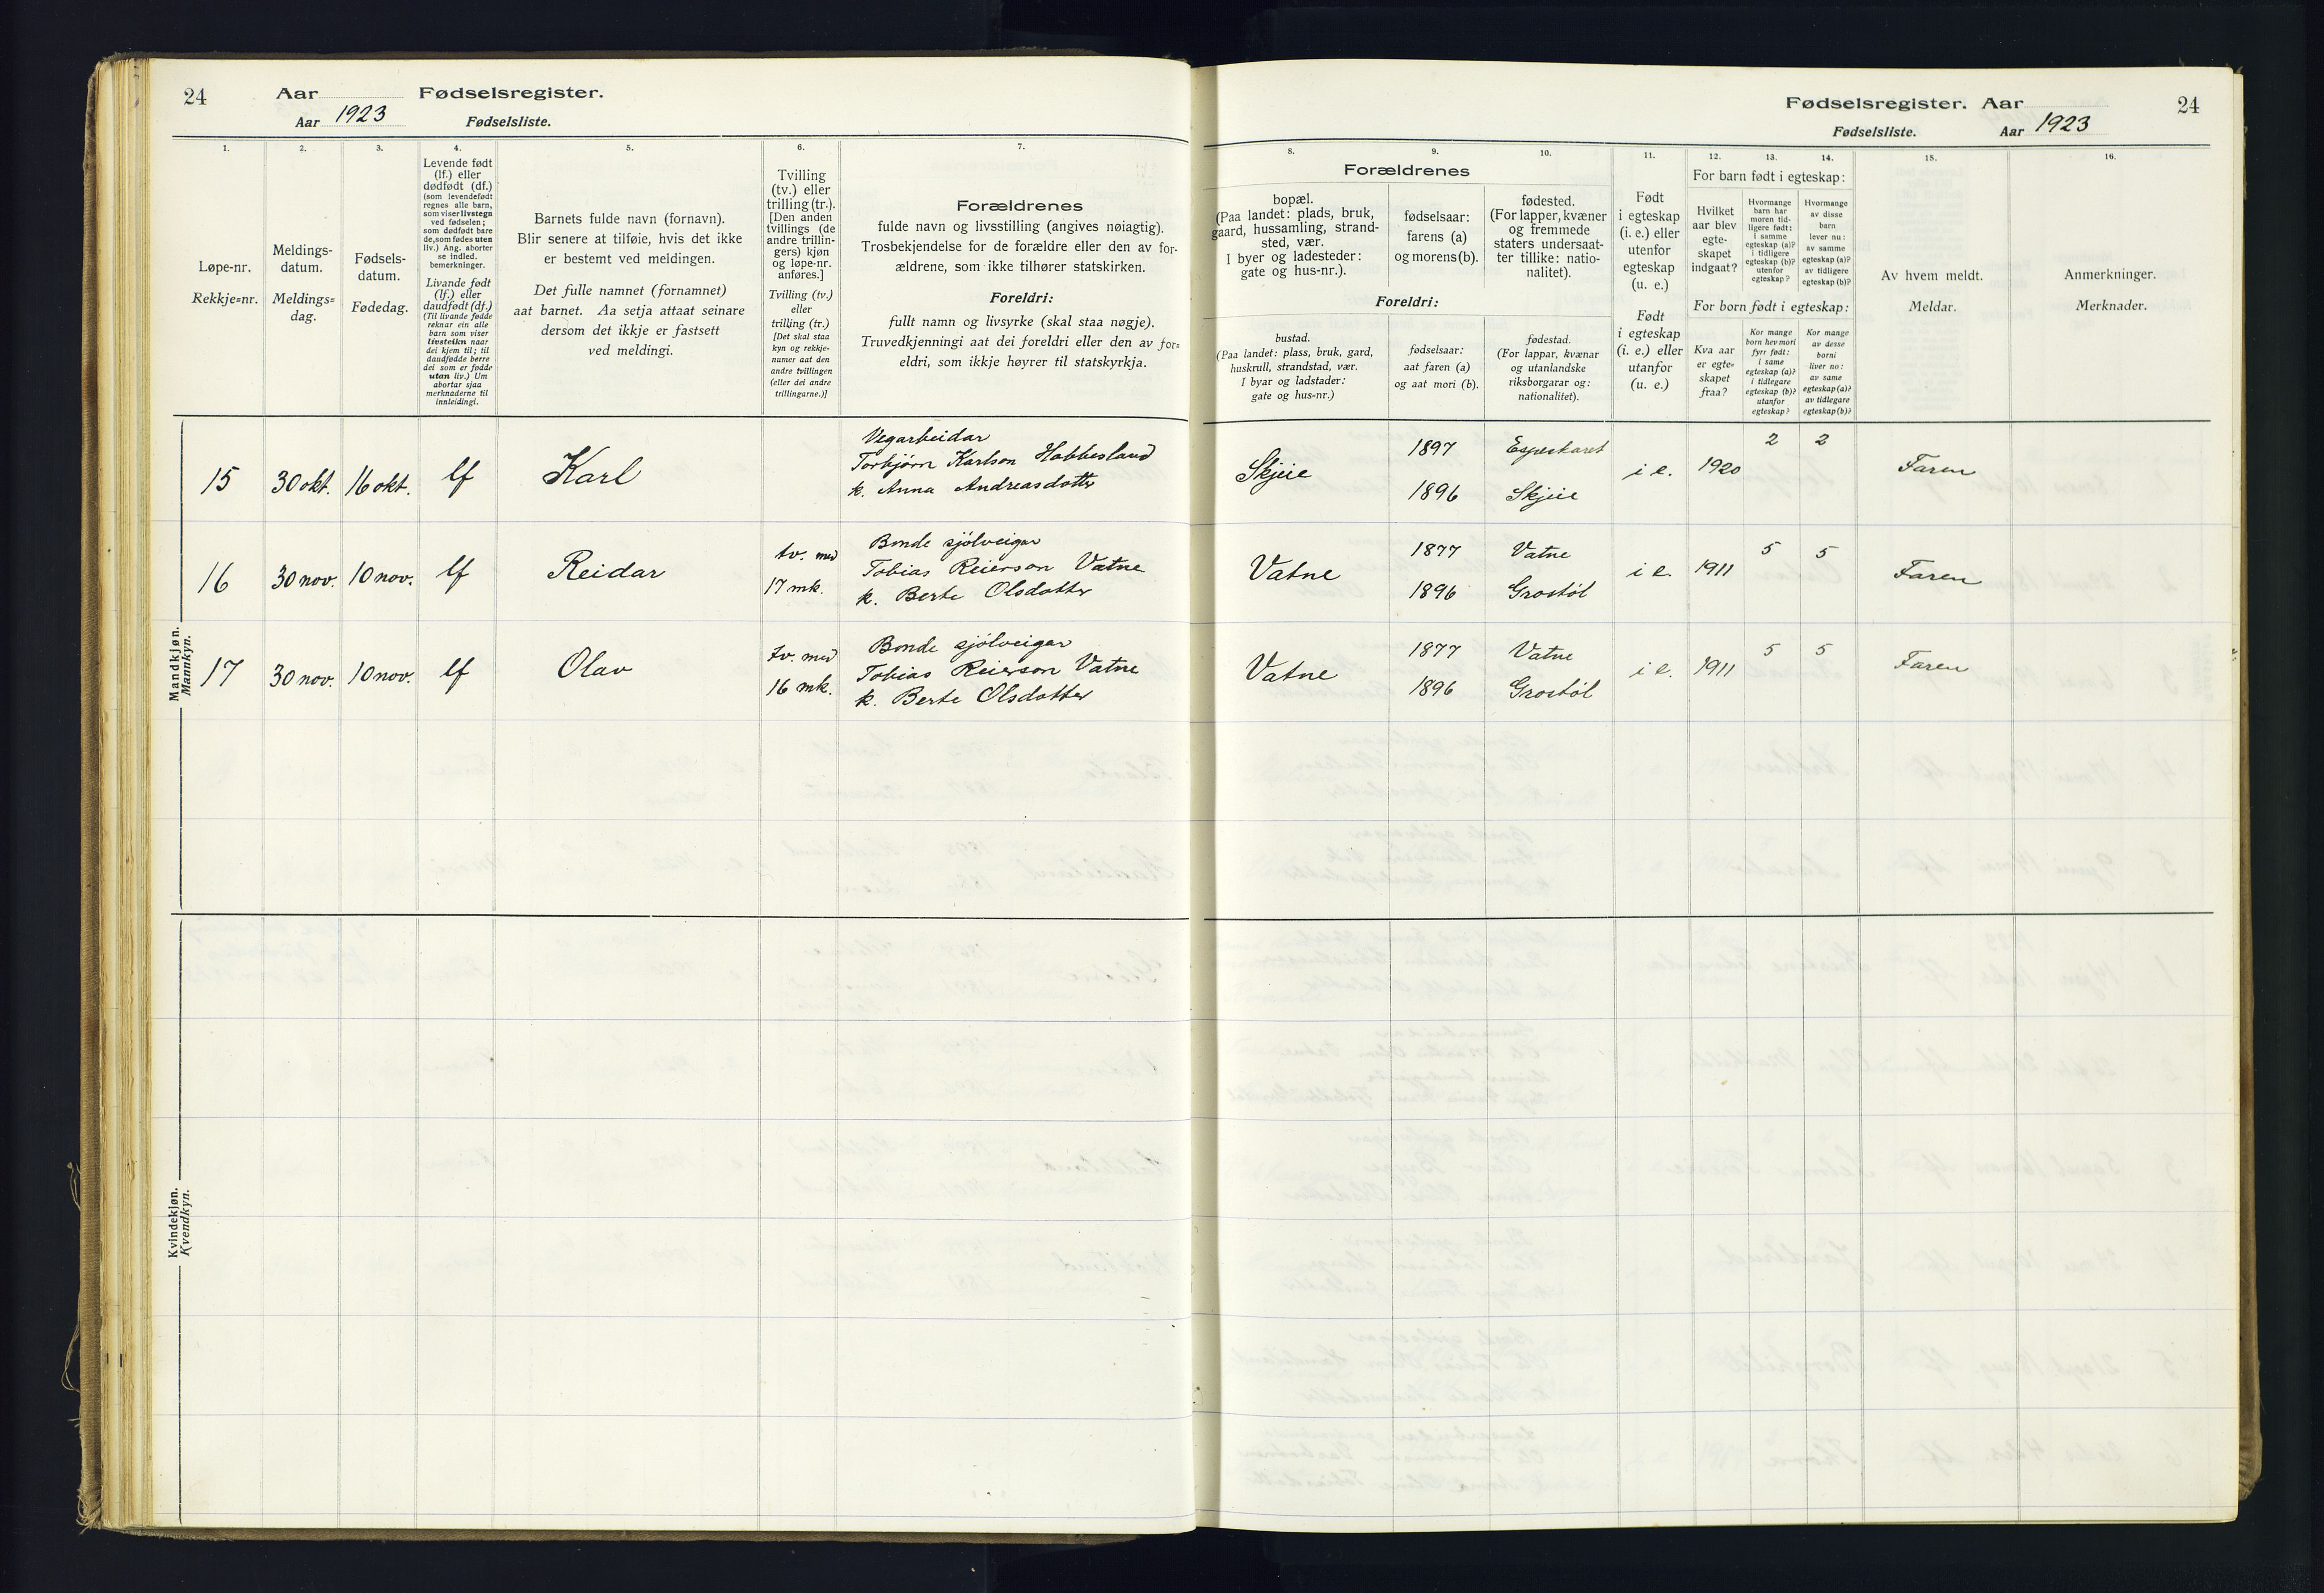 24 Aar Fødselsregister.
Aar 1923 Fødselsliste.
Fødselsregister. Aar 24
Fødselsliste. Aar 1923
1.
Løpe-nr.
Rekkje=nr.
2.
Meldings-
datum.
Meldings=
dag.
3.
Fødsels-
datum.
Fødedag.
4.
Levende født
(lf.) eller
dødfødt (df.)
(som levendefødt
regnes alle barn,
som viser livstegn
ved fødselen;
som dødfødt bare
de, som fødes uten
liv.) Ang. aborter
se indled.
bemerkninger.
Livande født
(lf.) eller
daudfødt (df.)
(Til livande fødde
reknar ein alle
barn som viser
livsteikn naar
dei kjem til; til
daudfødde berre
dei som er fødde
utan liv.) Um
abortar sjaa
merknaderne til
innleidingi.
5.
Barnets fulde navn (fornavn).
Blir senere at tilføie, hvis det ikke
er bestemt ved meldingen.
Det fulle namnet (fornamnet)
aat barnet. Aa setja attaat seinare
dersom det ikkje er fastsett
ved meldingi.
6.
Tvilling
(tv.) eller
trilling (tr.).
[Den anden
tvillings (de
andre trillin-
gers) kjøn
og løpe-nr.
anføres.]
Tvilling (tv.)
eller
trilling (tr.)
[Det skal staa
kyn og rekkje-
numer aat den
andre tvillingen
(eller dei andre
trillingarne.)]
7.
Forældrenes
fulde navn og livsstilling (angives nøiagtig).
Trosbekjendelse for de forældre eller den av for-
ældrene, som ikke tilhører statskirken.
Foreldri:
fullt namn og livsyrke (skal staa nøgje).
Truvedkjenningi aat dei foreldri eller den av for=
eldri, som ikkje høyrer til statskyrkja.
Forældrenes
8.
bopæl.
(Paa landet: plads, bruk,
gaard, hussamling, strand-
sted, vær.
I byer og ladesteder:
gate og hus-nr.).
9.
fødselsaar:
farens (a)
og morens (b).
10.
fødested.
(For lapper, kvæner
og fremmede
staters undersaat-
ter tillike: natio-
nalitet).
Foreldri:
bustad.
(Paa landet: plass, bruk, gard,
huskrull, strandstad, vær.
I byar og ladstader:
gate og hus=nr.)
fødselsaar:
aat faren (a)
og aat mori (b).
fødestad.
(For lappar, kvænar
og utanlandske
riksborgarar og:
nationalitet).
11.
Født
i egteskap
(i. e.) eller
utenfor
egteskap
(u. e.)
Født
i egteskap
(i. e.) eller
utanfor
(u. e.)
For barn født i egteskap:
12.
Hvilket
aar blev
egte-
skapet
indgaat?
13.
Hvormange
barn har
moren tid-
ligere født:
i samme
egteskap (a)?
i tidligere
egteskap (b)?
utenfor
egteskap?
14.
Hvormange
av disse
barn
lever nu:
av samme
egteskap (a)?
av tidligere
egteskap (b)?
For born født i egteskap:
Kva aar
er egte=
skapet
fraa?
Kor mange
born hev mori
fyrr født:
i same
egteskap (a)?
i tidlegare
egteskap (b)?
utanfor
egteskap?
Kor mange
av desse
borni
liver no:
av same
egteskap (a)?
av tidlegare
egteskap (b)?
15.
Av hvem meldt.
Meldar.
16.
Anmerkninger.
Merknader.
Mandkjøn.
Mannkyn.
15 30 okt. 16 okt. lf Karl
Vegarbeidar
Torbjörn Karlson Habbesland
k. Anna Andreasdotter
Skjeie 1897 Espeskaret i e. 1920 2 2 Faren
1896 Skjeie
16 30 nov. 10 nov. lf Reidar tv. med
17 mk.
Bonde sjölveigar
Tobias Reierson Vatne
k. Berte Olsdotter
Vatne 1877 Vatne i e. 1911 5 5 Faren
1896 Grostöl
17 30 nov. 10 nov. lf Olav tv. med
16 mk.
Bonde sjölveigar
Tobias Reierson Vatne
k. Berte Olsdotter
Vatne 1877 Vatne i e. 1911 5 5 Faren
1896 Grostöl
Kvindekjøn.
Kvendkyn.